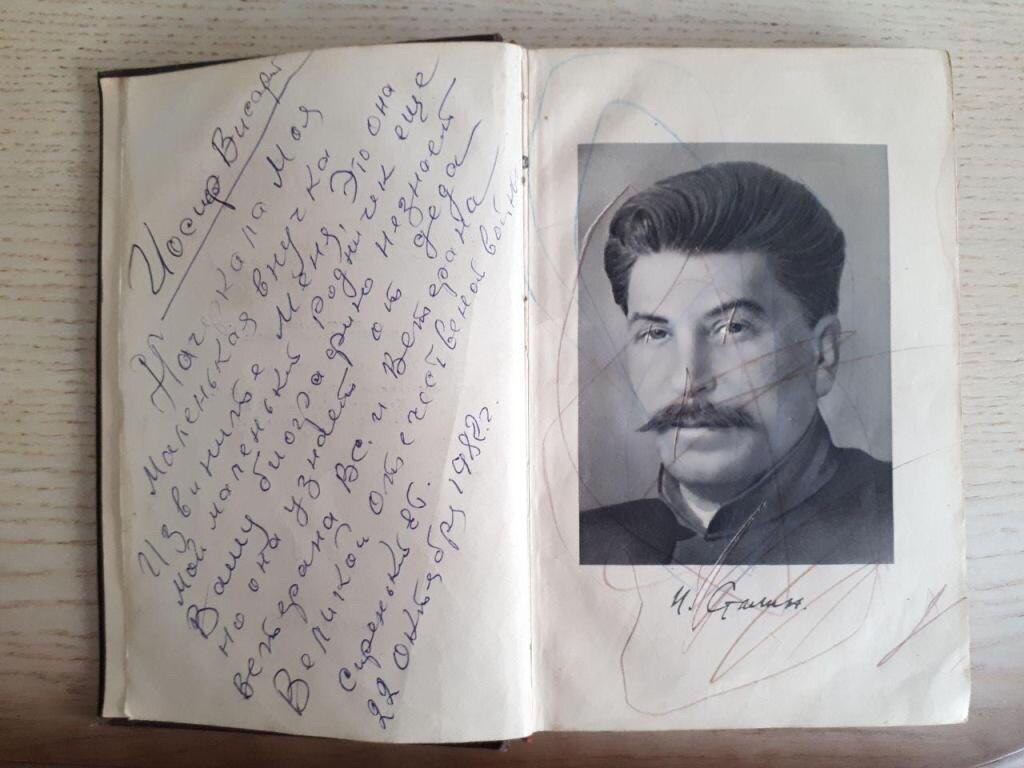 Иосиф Висари
Начеркала Моя
маленькая внучка
Извините Меня, Это она
мой маленький родничек еще
Вашу биографию незнает
но она узнает от деда
ветерана ВС. и Ветерана
Великой отечественной войны
22 октября 1982г.
И. Сталин.